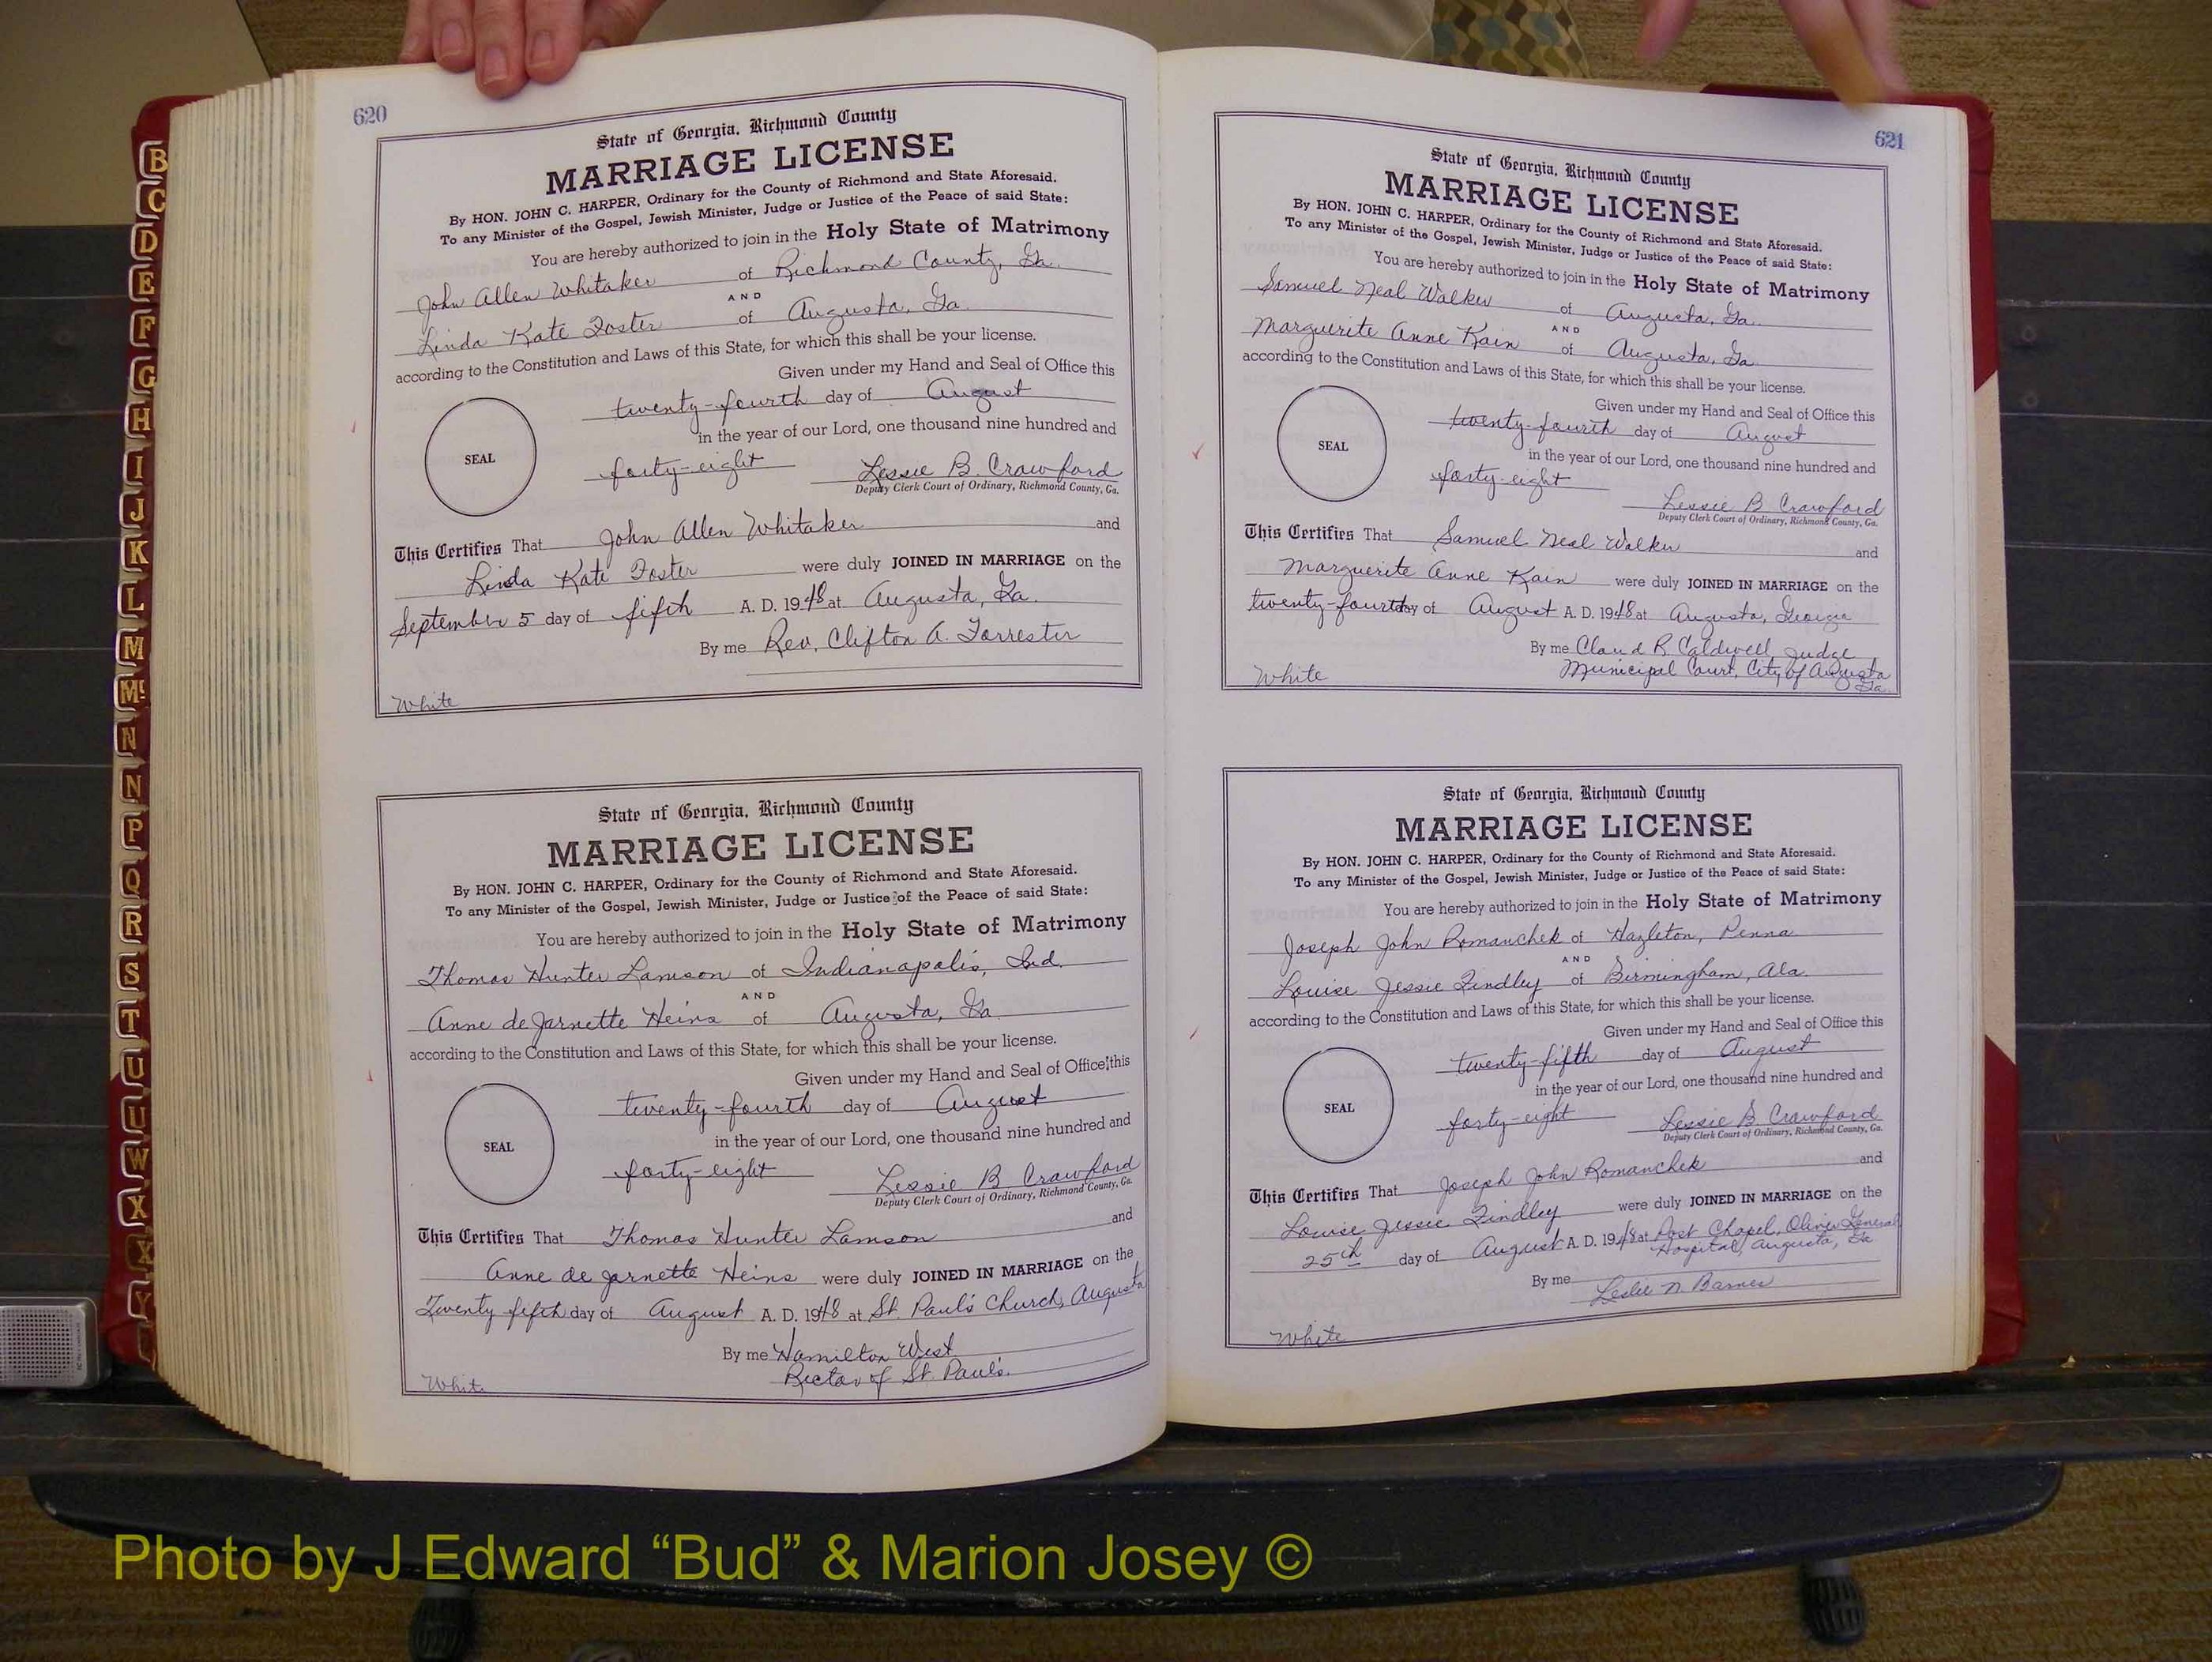 620
State of Georgia, Richmond County
MARRIAGE LICENSE
By HON. JOHN C. HARPER, Ordinary for the County of Richmond and State Aforesaid.
To any Minister of the Gospel, Jewish Minister, Judge or Justice of the Peace of said State:
You are hereby authorized to join in the Holy State of Matrimony
John Allen Whitaker of Richmond County, Ga.
AND
Linda Kate Foster of Augusta, Ga.
according to the Constitution and Laws of this State, for which this shall be your license.
Given under my Hand and Seal of Office this
twenty-fourth day of August
in the year of our Lord, one thousand nine hundred and
SEAL
forty-eight Lessie B. Crawford
Deputy Clerk Court of Ordinary, Richmond County, Ga.
This Certifies That John Allen Whitaker and
Linda Kate Foster were duly JOINED IN MARRIAGE on the
September 5 day of fifth A. D. 1948 at Augusta, Ga.
By me Rev. Clifton A. Forrester
White
State of Georgia, Richmond County
MARRIAGE LICENSE
By HON. JOHN C. HARPER, Ordinary for the County of Richmond and State Aforesaid.
To any Minister of the Gospel, Jewish Minister, Judge or Justice of the Peace of said State:
You are hereby authorized to join in the Holy State of Matrimony
Thomas Hunter Lamson of Indianapolis, Ind.
AND
Anne de Jarnette Heins of Augusta, Ga
according to the Constitution and Laws of this State, for which this shall be your license.
Given under my Hand and Seal of Office this
twenty-fourth day of August
in the year of our Lord, one thousand nine hundred and
SEAL
forty-eight Lessie B Crawford
Deputy Clerk Court of Ordinary, Richmond County, Ga.
This Certifies That Thomas Hunter Lamson and
Anne de Jarnette Heins were duly JOINED IN MARRIAGE on the
Twenty fifth day of August A. D. 1948 at St. Paul's Church, Augusta
By me Hamilton West
Rector of St. Paul's.
White
621
State of Georgia, Richmond County
MARRIAGE LICENSE
By HON. JOHN C. HARPER, Ordinary for the County of Richmond and State Aforesaid.
To any Minister of the Gospel, Jewish Minister, Judge or Justice of the Peace of said State:
You are hereby authorized to join in the Holy State of Matrimony
Samuel Neal Walker of Augusta, Ga.
AND
Marguerite Anne Kain of Augusta, Ga
according to the Constitution and Laws of this State, for which this shall be your license.
Given under my Hand and Seal of Office this
twenty-fourth day of August
in the year of our Lord, one thousand nine hundred and
SEAL
forty-eight
Lessie B Crawford
Deputy Clerk Court of Ordinary, Richmond County, Ga.
This Certifies That Samuel Neal Walker and
Marguerite Anne Kain were duly JOINED IN MARRIAGE on the
twenty-fourth day of August A. D. 1948 at Augusta, Georgia
By me Claud R. Caldwell, Judge
Municipal Court, City of Augusta
Ga.
White
State of Georgia, Richmond County
MARRIAGE LICENSE
By HON. JOHN C. HARPER, Ordinary for the County of Richmond and State Aforesaid.
To any Minister of the Gospel, Jewish Minister, Judge or Justice of the Peace of said State:
You are hereby authorized to join in the Holy State of Matrimony
Joseph John Romanchek of Hazleton, Penna
AND
Louise Jessie Findley of Birmingham, Ala.
according to the Constitution and Laws of this State, for which this shall be your license.
Given under my Hand and Seal of Office this
twenty-fifth day of August
in the year of our Lord, one thousand nine hundred and
SEAL
forty-eight Lessie B. Crawford
Deputy Clerk Court of Ordinary, Richmond County, Ga.
This Certifies That Joseph John Romanchek and
Louise Jessie Findley were duly JOINED IN MARRIAGE on the
25th day of August A. D. 1948 at Post Chapel, Oliver General
Hospital, Augusta, Ga
By me Leslie N. Barnes
White
B
C
D
E
F
G
H
I
J
K
L
M
Mc
N
N
P
Q
R
S
T
U
U
W
X
X
Y
Photo by J Edward “Bud” & Marion Josey ©